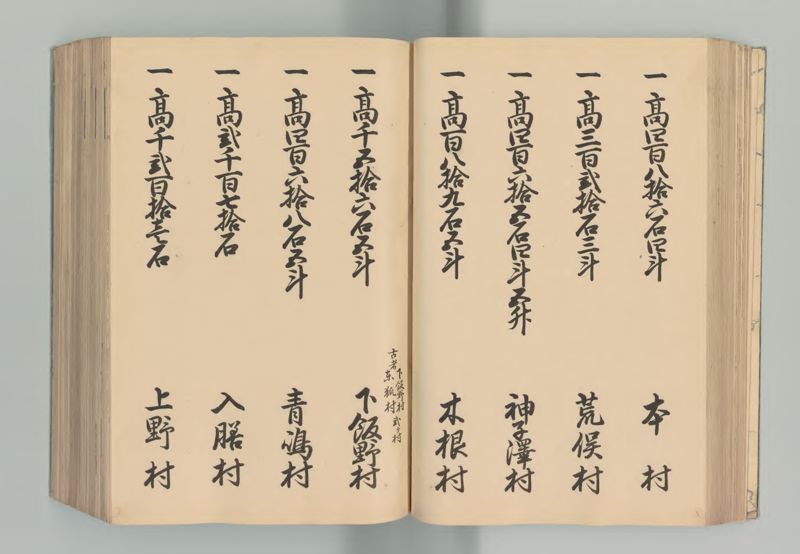 一 高四百八拾六石四斗 本村
一 高三百弐拾石三斗 荒俣村
一 高四百六拾五石四斗五升 神子澤村
一 高百八拾九石五斗 木根村
古者下飯野村
东狐村 弐ヶ村
一 高千五拾六石五斗 下飯野村
一 高四百六拾八石五斗 青嶋村
一 高弐千百七拾石 入膳村
一 高千弐百拾壱石 上野村